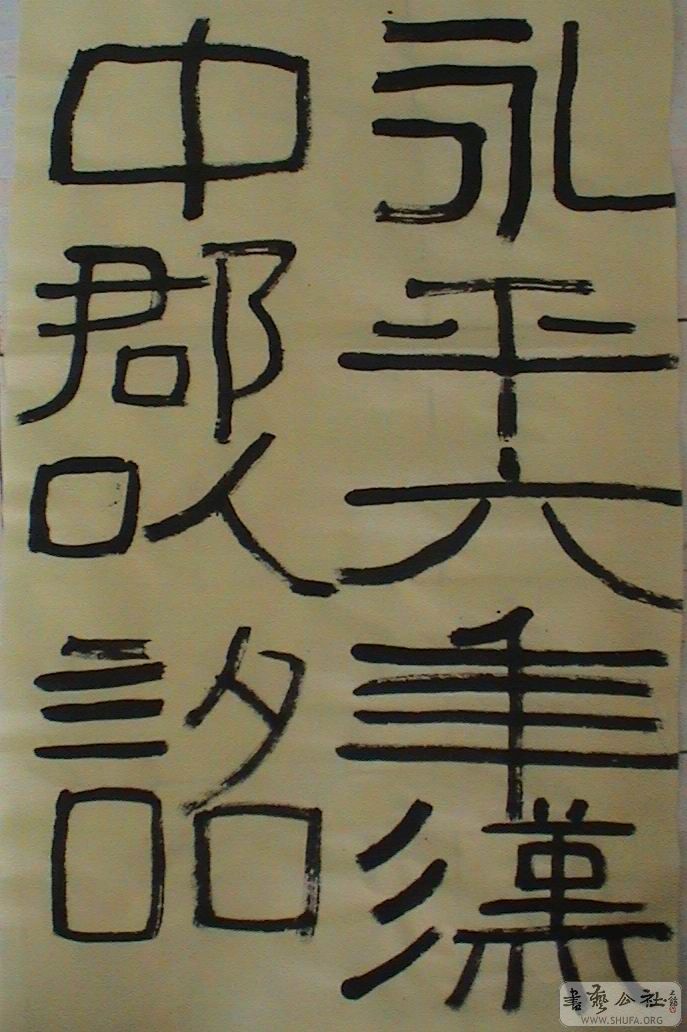 永平六年漢
中郡以詔
書藝公社
WWW.SHUFA.ORG